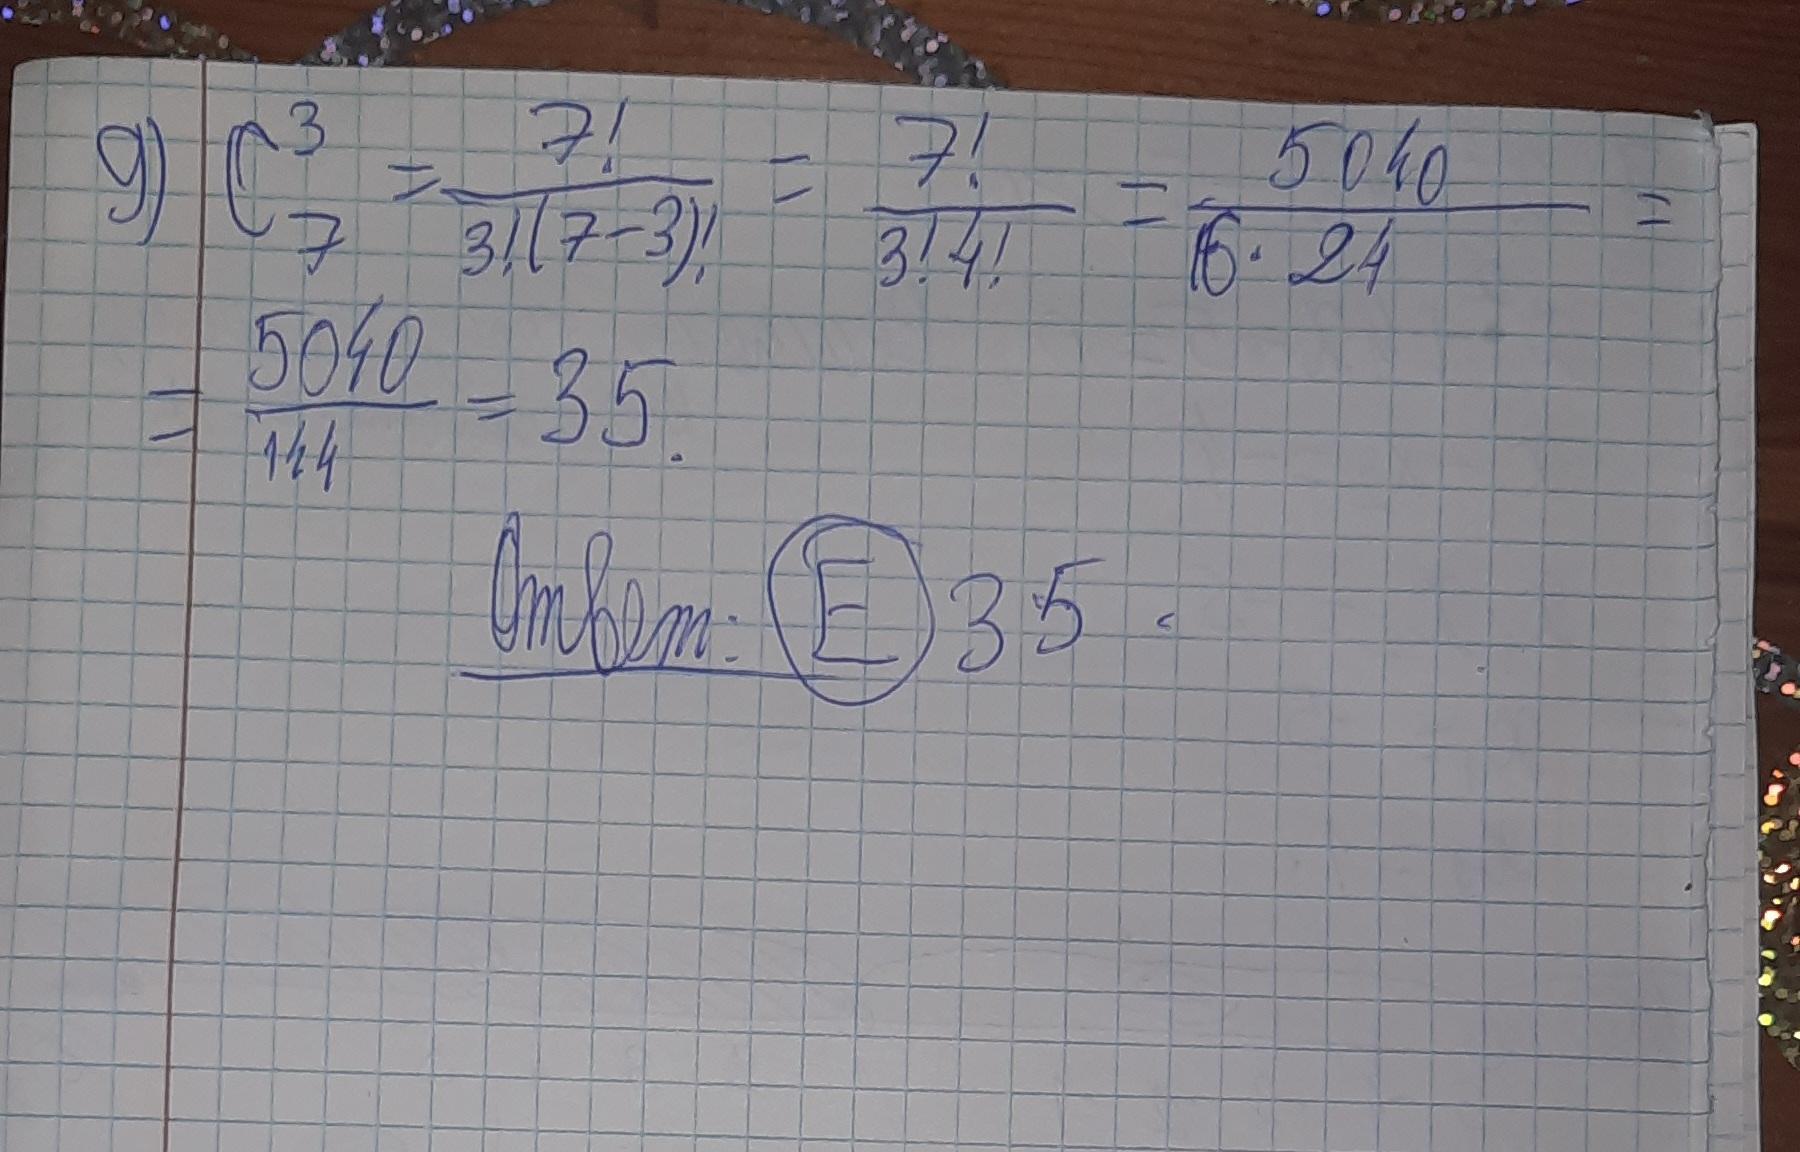 9) C³₇ = 7!/3!(7-3)! = 7!/3!4! = 5040/6·24 =
= 5040/144 = 35.
Ответ: E 35.